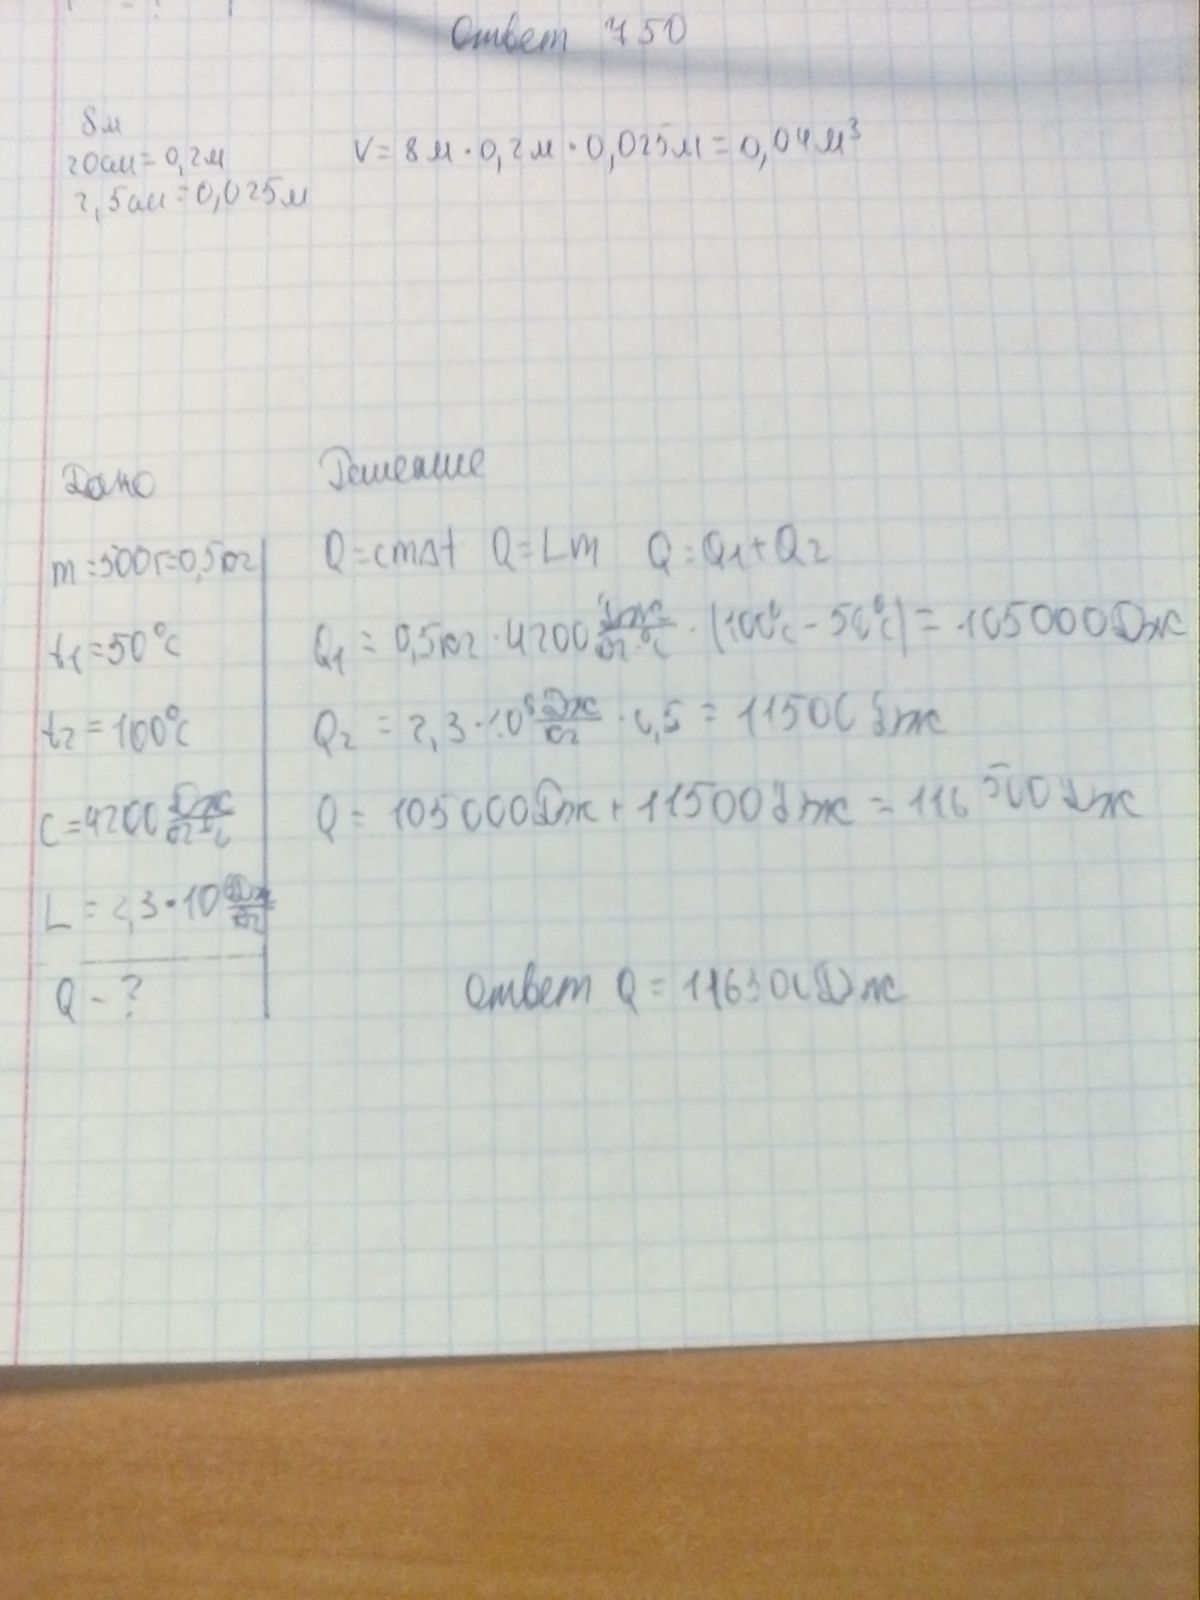 Ответ 750
8м
20см = 0,2м
2,5см = 0,025м
V = 8м · 0,2м · 0,025м = 0,04м³
Дано
m = 500г = 0,5кг
t₁ = 50°C
t₂ = 100°C
C = 4200 Дж/кг °C
L = 2,3 · 10⁶ Дж/кг
Q - ?
Решение
Q = cmΔt Q = Lm Q = Q₁ + Q₂
Q₁ = 0,5кг · 4200 Дж/кг·°C · (100°C - 50°C) = 105000 Дж
Q₂ = 2,3 · 10⁶ Дж/кг · 0,5 = 11500 Дж
Q = 105000 Дж + 11500 Дж = 116500 Дж
Ответ Q = 116500 Дж